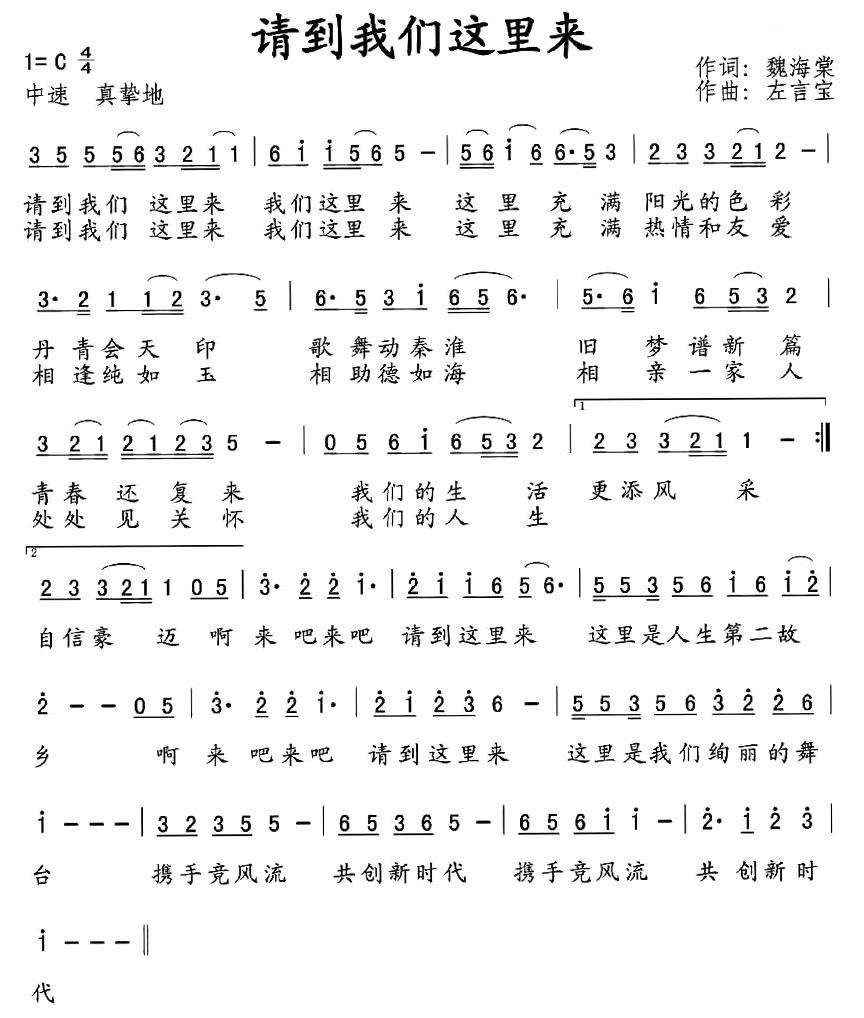 请到我们这里来
1=C 4/4
作词：魏海棠
中速 真挚地
作曲：左言宝
3 5 5 5 6 3 2 1 1 | 6 i i 5 6 5 － | 5 6 i 6 6· 5 3 | 2 3 3 2 1 2 － |
请到我们 这里来 我们这里 来 这 里 充 满 阳光的色 彩
请到我们 这里来 我们这里 来 这 里 充 满 热情和友 爱
3· 2 1 1 2 3· 5 | 6· 5 3 i 6 5 6· | 5· 6 i 6 5 3 2 |
丹 青会天 印 歌 舞动秦淮 旧 梦 谱新 篇
相 逢纯如 玉 相 助德如海 相 亲 一家 人
3 2 1 2 1 2 3 5 － | 0 5 6 i 6 5 3 2 | 1 2 3 3 2 1 1 － :‖
青春 还 复 来 我们的生 活 更添风 采
处处 见 关 怀 我们的人 生
2
2 3 3 2 1 1 0 5 | 3· 2 2 i· | 2 i i 6 5 6· | 5 5 3 5 6 i 6 i 2 |
自信豪 迈 啊 来 吧来吧 请到这里来 这里是人生第二故
2 － － 0 5 | 3· 2 2 i· | 2 i 2 3 6 － | 5 5 3 5 6 3 2 2 6 |
乡 啊 来 吧来吧 请到这里来 这里是我们绚丽的舞
i － － － | 3 2 3 5 5 － | 6 5 3 6 5 － | 6 5 6 i i － | 2· i 2 3 |
台 携手竞风流 共创新时代 携手竞风流 共 创新时
i － － － ‖
代